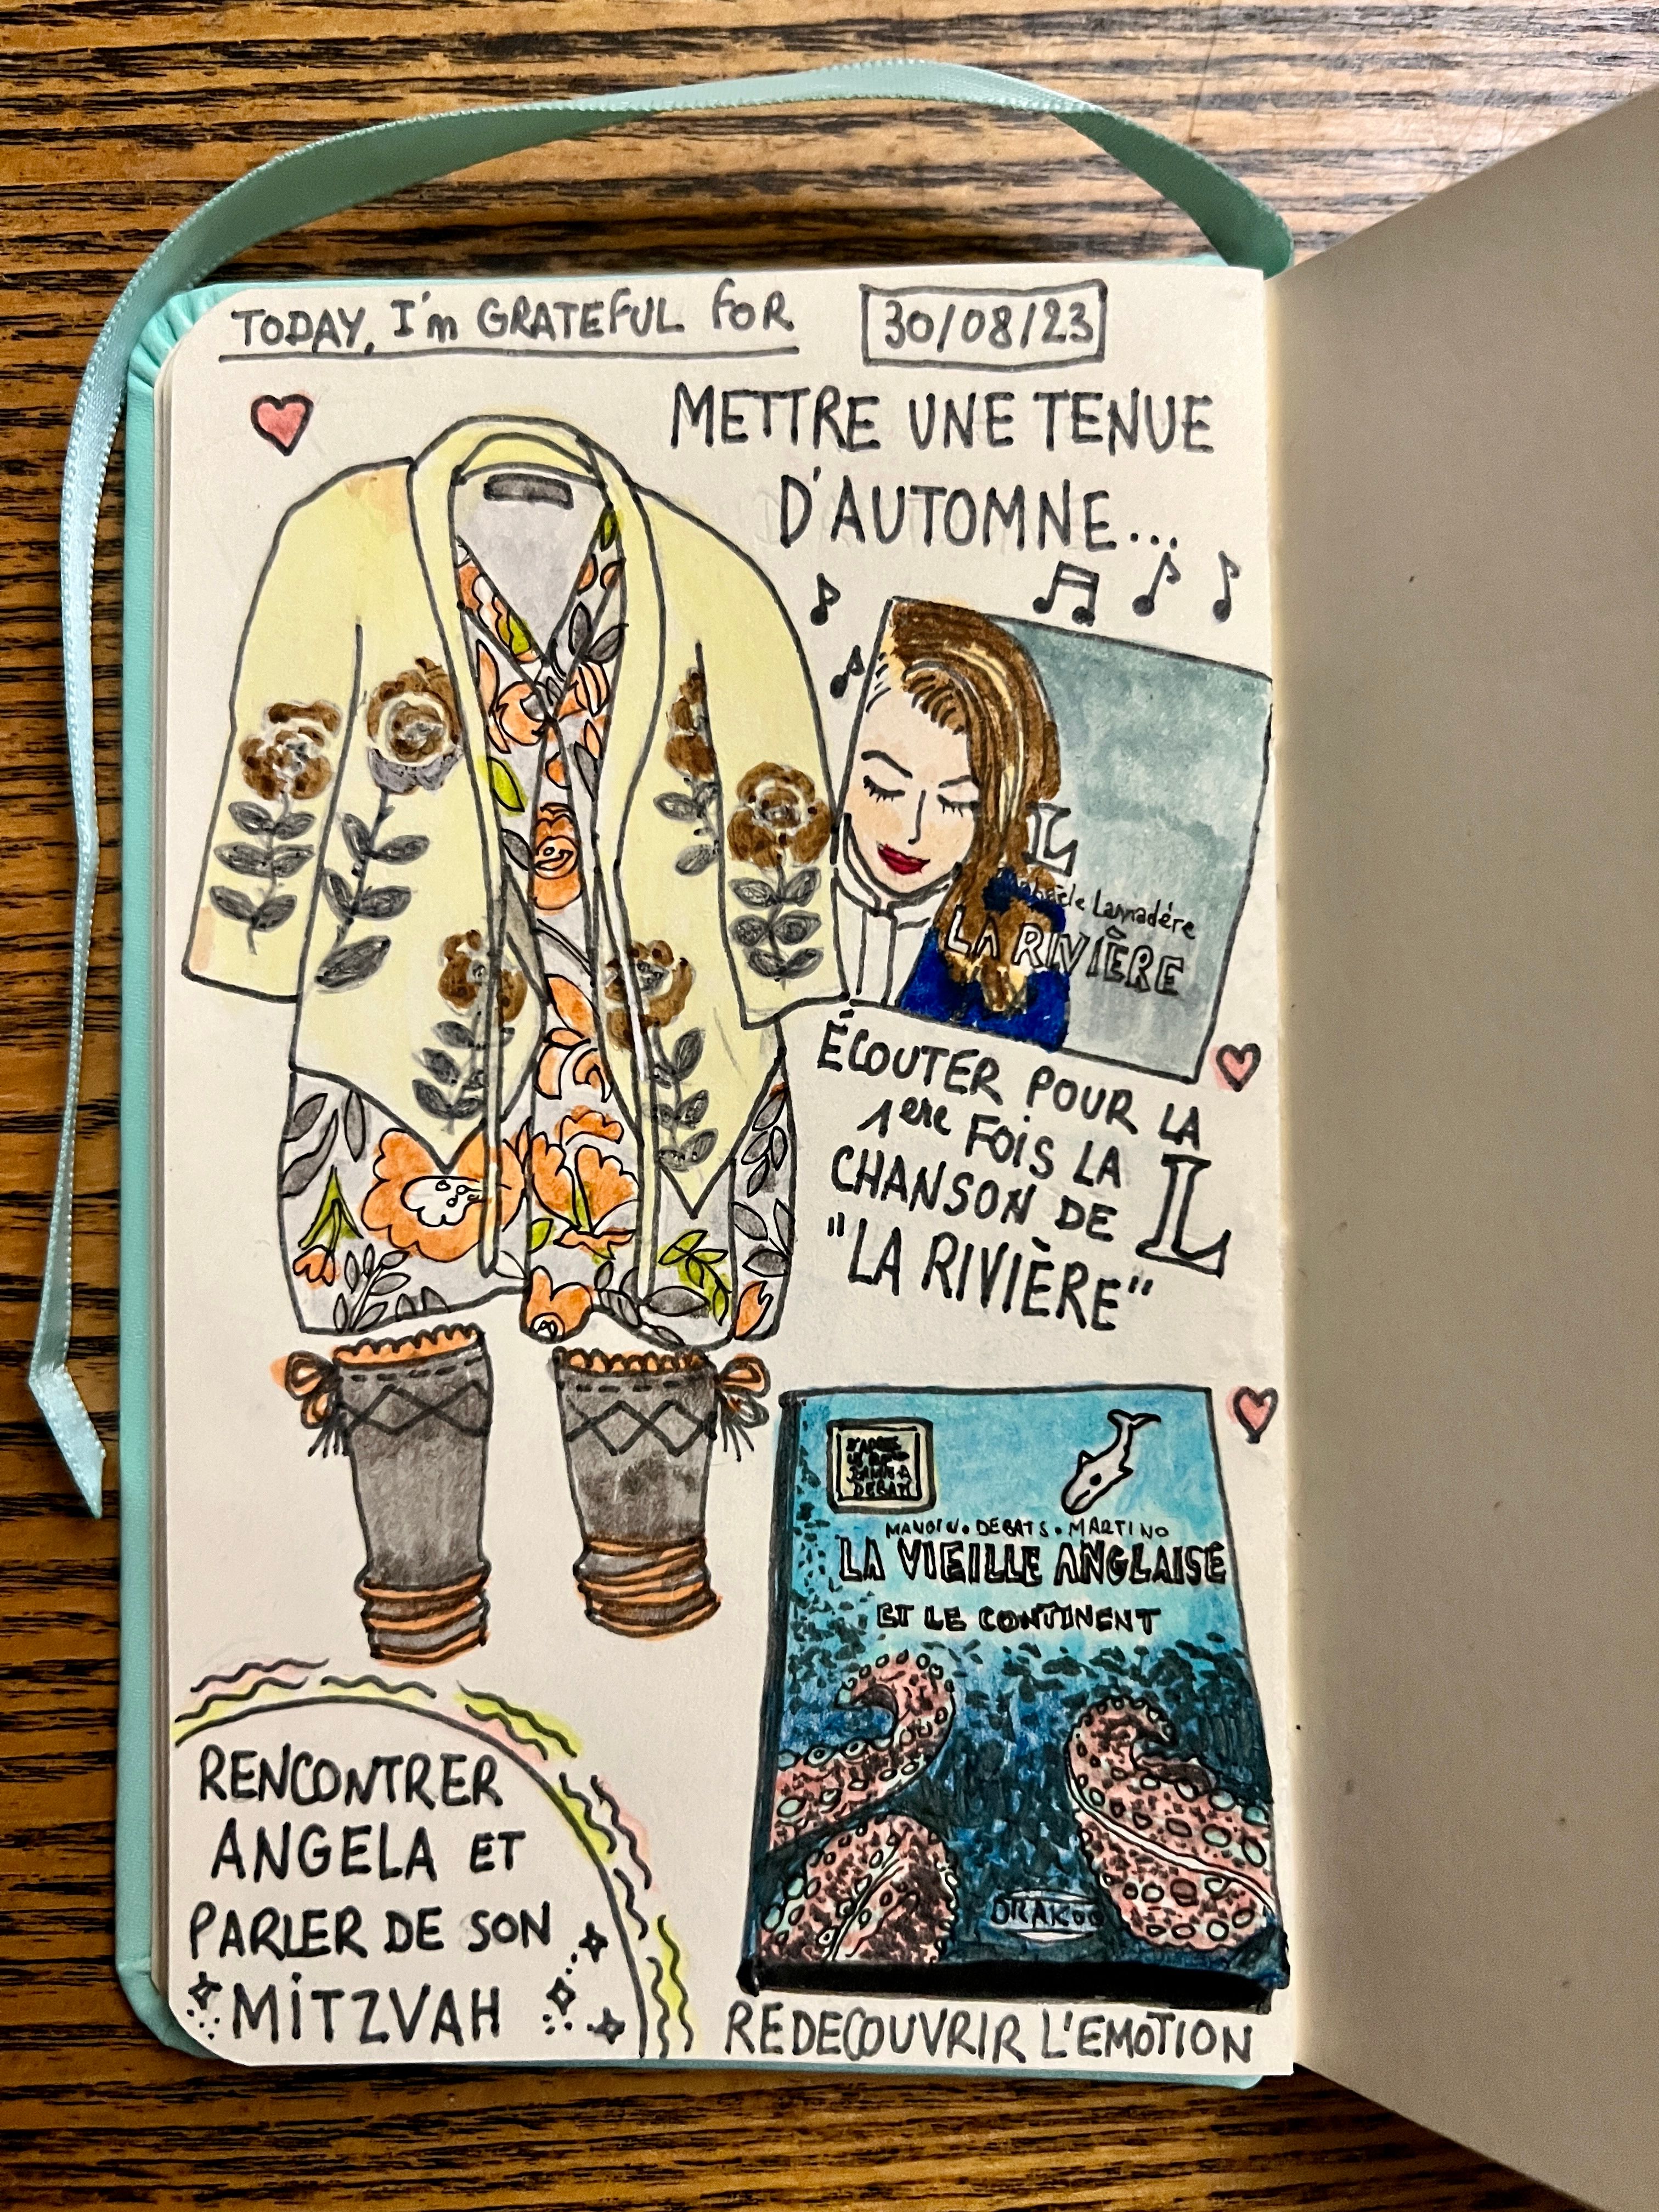 TODAY, I'm GRATEFUL FOR
30/08/23
METTRE UNE TENUE
D'AUTOMNE...
L
Lamadère
LA RIVIÈRE
ÉCOUTER POUR LA
1ere FOIS LA
CHANSON DE L
"LA RIVIÈRE"
D'APRÈS
DEBATS
. DEBATS . MARTINO
LA VIEILLE ANGLAISE
ET LE CONTINENT
DRAKOO
REDECOUVRIR L'EMOTION
RENCONTRER
ANGELA ET
PARLER DE SON
MITZVAH